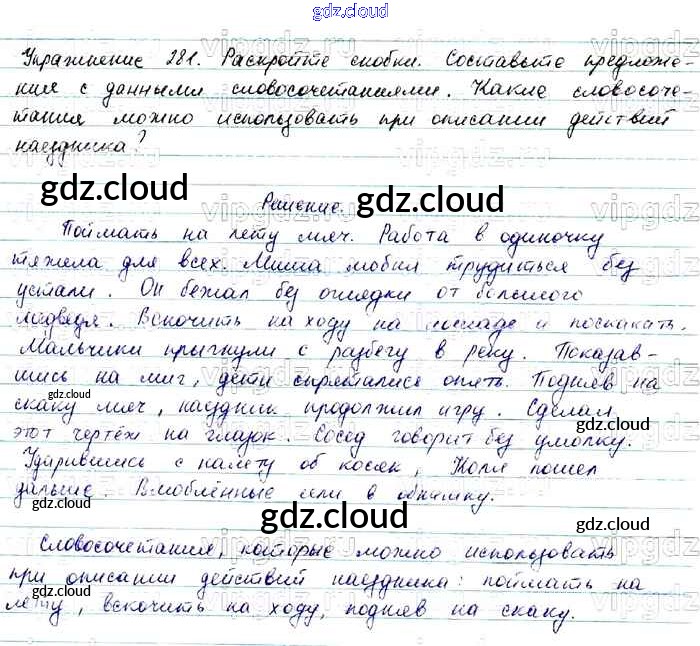 gdz.cloud
Упражнение 281. Раскройте скобки. Составьте предложе-
ния с данными словосочетаниями. Какие словосоче-
тания можно использовать при описании действий
наездника?
gdz.cloud
Решение.
gdz.cloud
Поймать на лету мяч. Работа в одиночку
тяжела для всех. Миша любил трудиться без
устали. Он бежал без оглядки от большого
медведя. Вскочить на ходу на лошаде и поскакать.
Мальчики прыгнули с разбегу в реку. Показав-
шись на миг, дети спрятались опять. Подняв на
скаку мяч, наездник продолжил игру. Сделал
gdz.cloud
gdz.cloud
этот чертёж на глазок. Сосед говорит без умолку.
Ударившись с налету об косяк, Коля пошел
дальше. Влюблённые шли в обнимку.
gdz.cloud
gdz.cloud
gdz.cloud
Словосочетания, которые можно использовать
при описании действий наездника: поймать на
лету, вскочить на ходу, подняв на скаку.
gdz.cloud
gdz.cloud
gdz.cloud